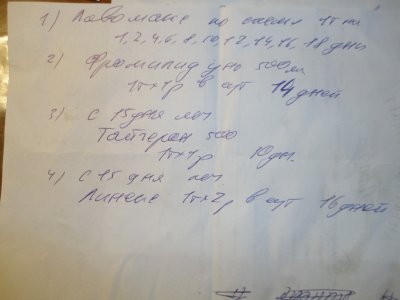 1) Лавомакс по схеме 1т на
1,2,4,6,8,10,12,14,16,18 дни
2) Фромилид уно 500мг
1т×1р в сут 14 дней
3) С 15 дня леч
Тайгерон 500
1т×1р 10дн.
4) С 15 дня леч
Линекс 1т×2р в сут 16 дней